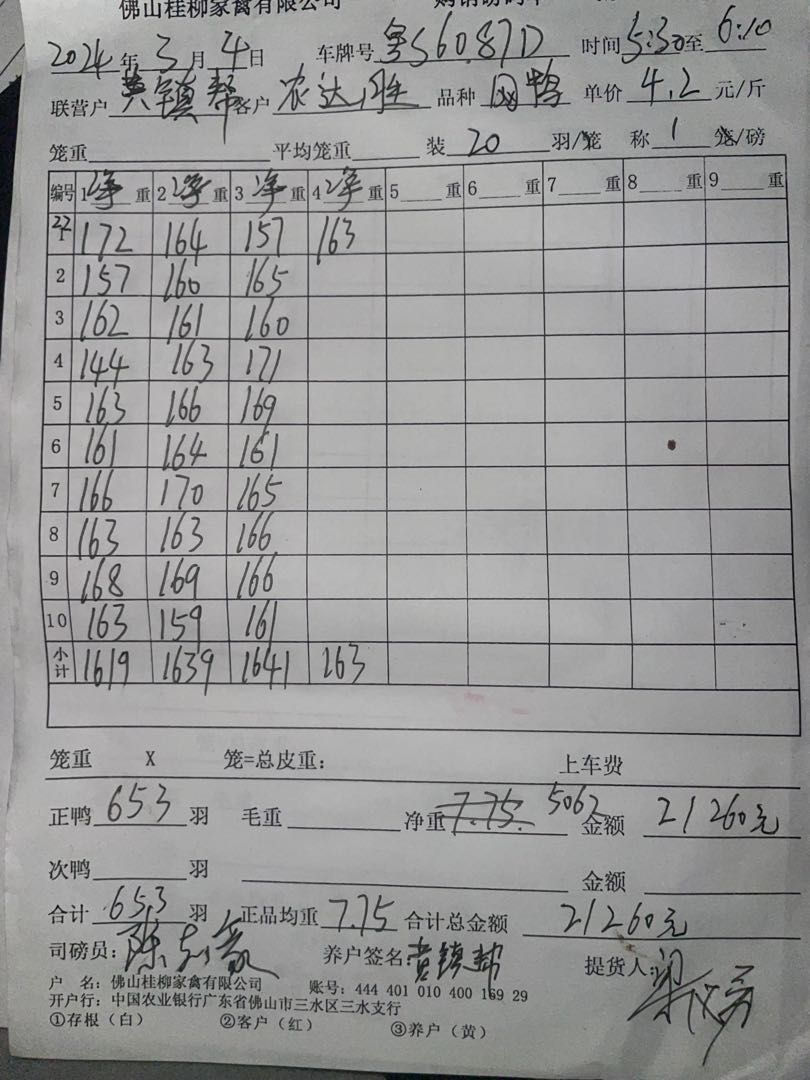 佛山桂柳家禽有限公司
2024年3月4日 车牌号 粤S6087D 时间 5:30至 6:10
联营户 黄镇帮 客户 农达胜 品种 网鸭 单价 4.2 元/斤
笼重 平均笼重 装 20 羽/笼 称 1 笼/磅
编号 1净重 2净重 3净重 4净重 5 重 6 重 7 重 8 重 9 重
1 172 164 157 163
2 157 160 165
3 162 161 160
4 144 163 171
5 163 166 169
6 161 164 161
7 166 170 165
8 163 163 166
9 168 169 166
10 163 159 161
小计 1619 1639 1641 163
笼重 X 笼=总皮重： 上车费
正鸭 653 羽 毛重 净重 7.75 5062 金额 21260元
次鸭 羽 金额
合计 653 羽 正品均重 7.75 合计总金额 21260元
司磅员： 养户签名：黄镇帮 提货人：
户 名：佛山桂柳家禽有限公司 账号：444 401 010 400 169 29
开户行：中国农业银行广东省佛山市三水区三水支行
①存根（白） ②客户（红） ③养户（黄）